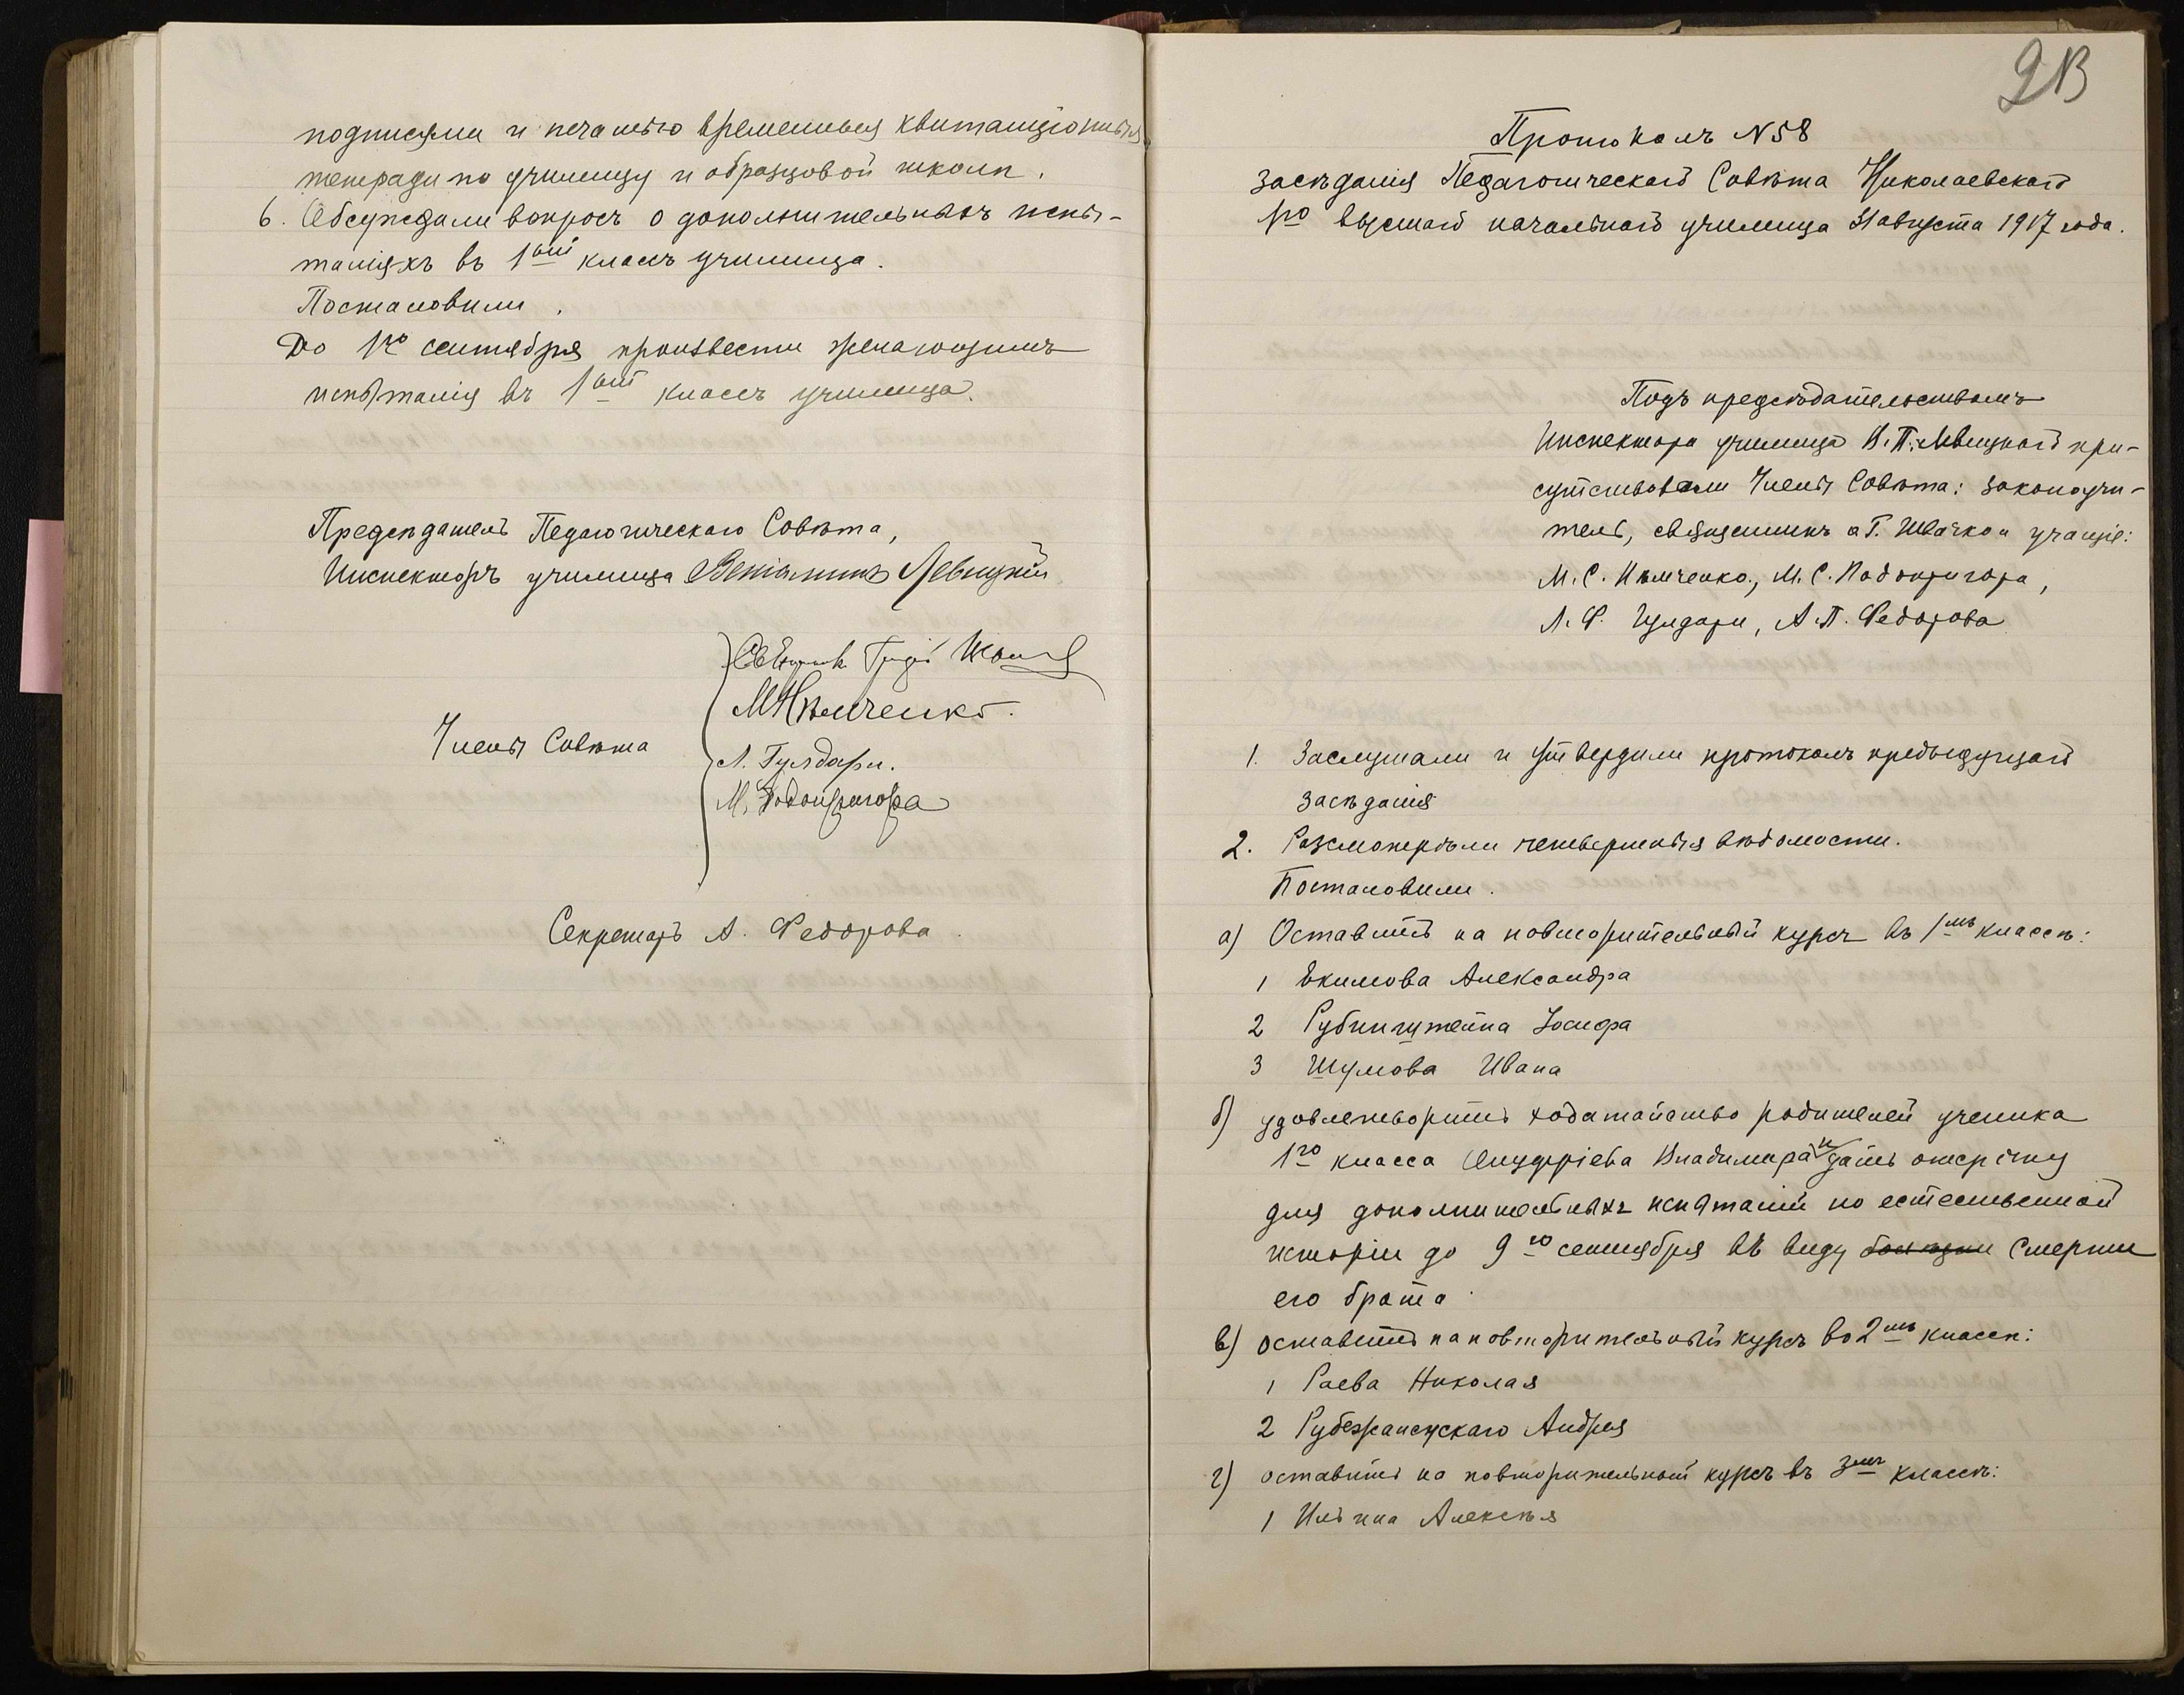 подписями и печатью временныя квитаціонныя
тетради по училищу и образцовой школѣ.
6. Обсуждали вопросъ о дополнительныхъ испы-
таніяхъ въ 1ый классъ училища.
Постановили.
До 1го сентября произвести желающимъ
испытанія въ 1ый классъ училища.
Предсѣдатель Педагогическаго Совѣта,
Инспекторъ училища Веніаминъ Левицкій
Члены Совѣта
М Нѣмченко.
Л. Гулдари.
М. Подопригора
Секретарь А. Федорова
Протоколъ N 58
засѣданія Педагогическаго Совѣта Николаевскаго
1го высшаго начальнаго училища 31 августа 1917 года.
Подъ предсѣдательствомъ
Инспектора училища В. П. Левицкаго при-
сутствовали Члены Совѣта: законоучи-
тель, священникъ о Г. Швачко и учащіе:
М. С. Нѣмченко, М. С. Подопригора,
Л. Ф. Гулдари, А. П. Федорова
1. Заслушали и утвердили протоколъ предыдущаго
засѣданія
2. Разсмотрѣли четвертныя вѣдомости.
Постановили.
а) Оставить на повторительный курсъ въ 1мъ классѣ:
1 Екимова Александра
2 Рубинштейна Іосифа
3 Шумова Ивана
б) удовлетворить ходатайство родителей ученика
1го класса Владимира и дать отсрочку
для дополнительныхъ испытаній по естественной
исторіи до 9го сентября въ виду смерти
его брата
в) оставить на повторительный курсъ во 2мъ классѣ:
1 Раева Николая
2 Рубежанскаго Андрея
г) оставить на повторительный курсъ въ 3мъ классѣ:
1 Ильина Алексѣя